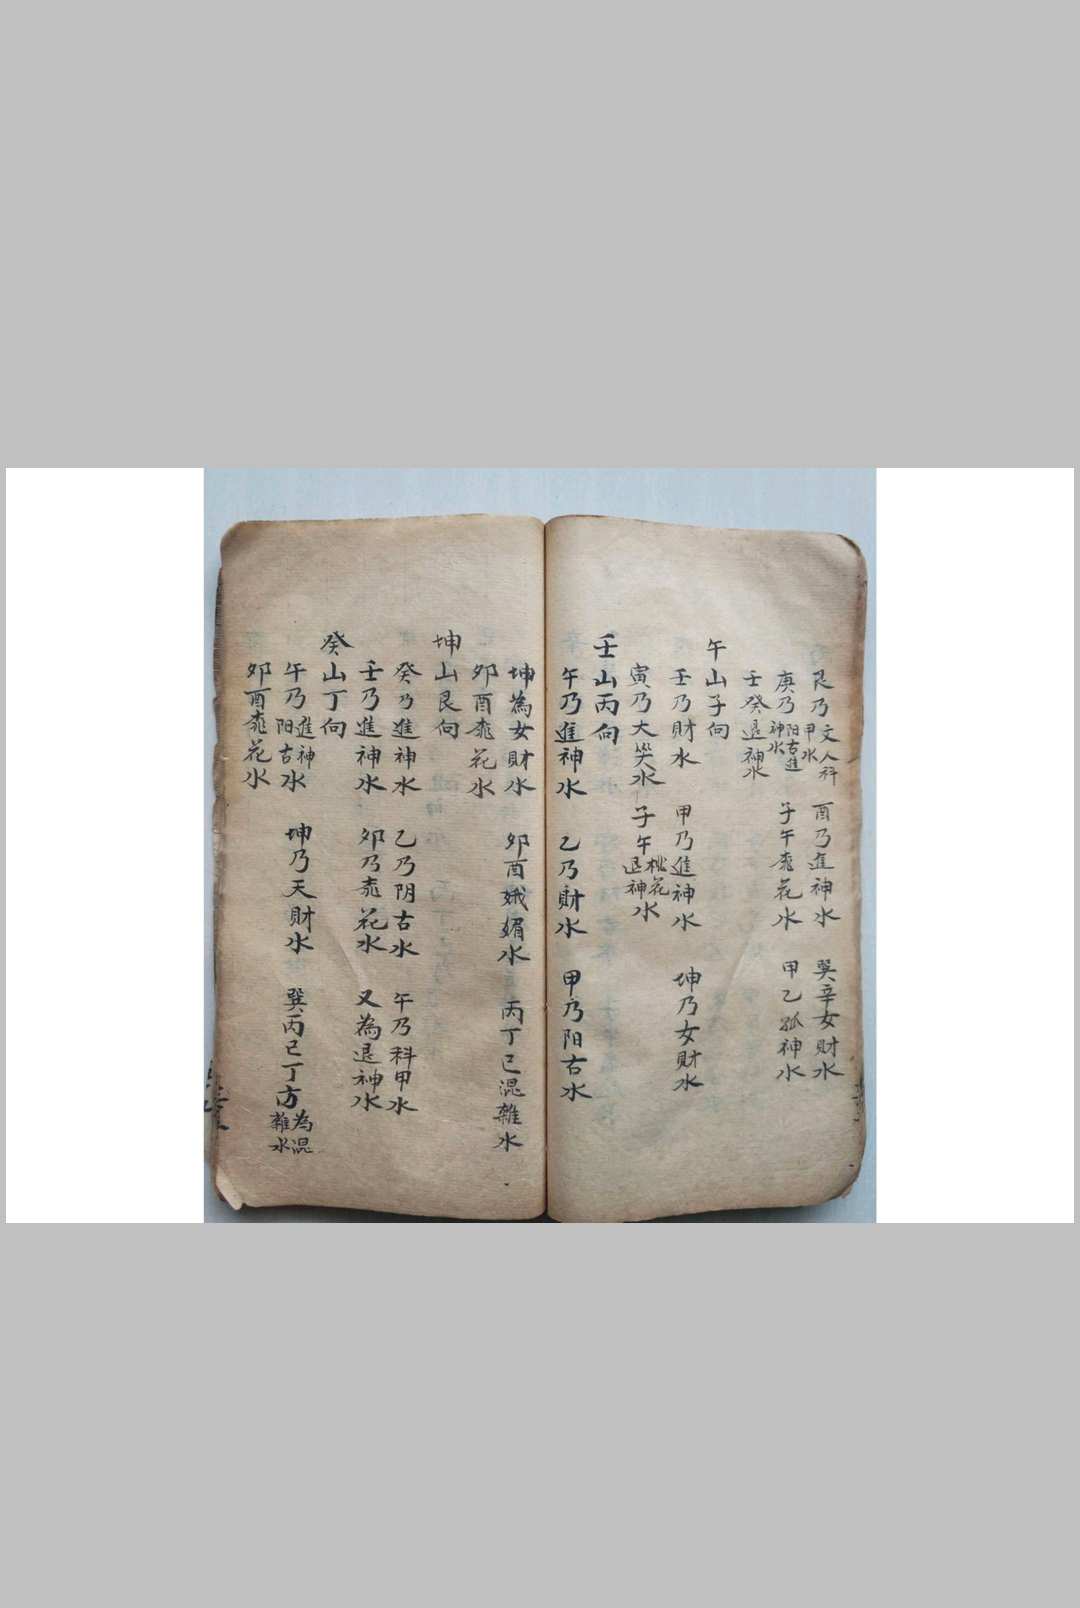 艮乃文人科甲水 酉乃進神水 巽辛女財水
庚乃陽古進神水 子午桃花水 甲乙孤神水
壬癸退神水
午山子向
壬乃財水 甲乃進神水 坤乃女財水
寅乃大哭水 子午桃花退神水
壬山丙向
午乃進神水 乙乃財水 甲乃阳古水
坤為女財水 卯酉娥媚水 丙丁巳混雜水
卯酉桃花水
坤山艮向
癸乃進神水 乙乃阴古水 午乃科甲水
壬乃進神水 卯乃桃花水 又為退神水
癸山丁向
午乃阳古進神水 坤乃天財水 巽丙巳丁方為混雜水
卯酉桃花水